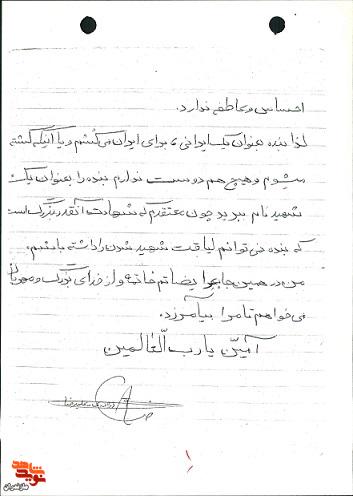 احساس و عاطفه ندارد.
لذا بنده بعنوان یک ایرانی، برای ایران می‌کُشم و یا اینکه کشته
میشوم و هیچ هم دوست ندارم بنده را بعنوان یک
شهید نام ببرید چون معتقدم که شهادت آنقدر بزرگ است
که بنده نمی‌توانم لیاقت شهید شدن را داشته باشم.
من در همین جا به عرایضم خاتمه و از خدای بزرگ و مهربان
می‌خواهم تا مرا بیامرزد.
آمین یا رب العالمین
نوید شاهد
مازندران